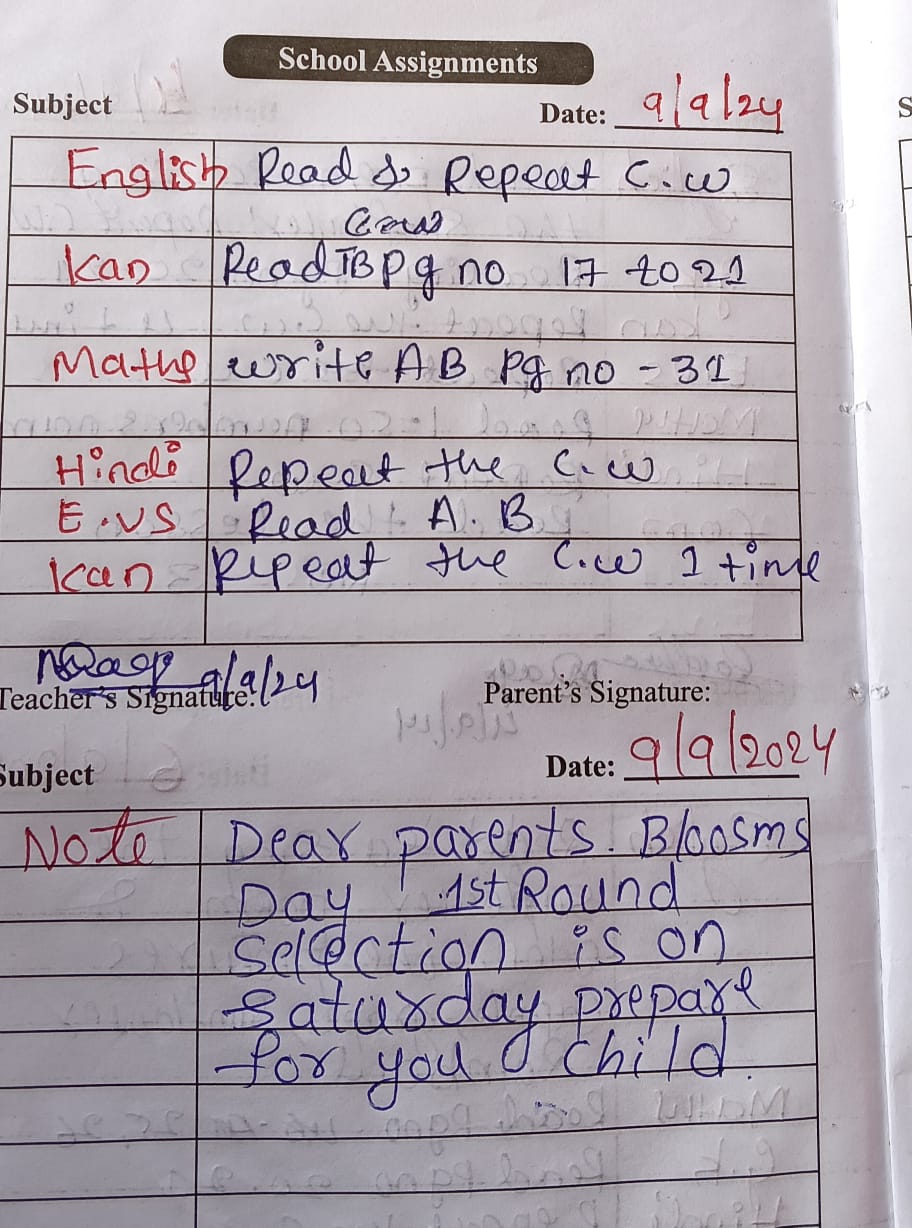 School Assignments
Subject Date: 9/9/24
English Read & Repeat C.W
Kan Read TB Pg no 17 to 21
Maths write AB Pg no - 31
Hindi Repeat the C.W
E.VS Read A.B
Kan Ripeat the C.W 1 time
9/9/24
Teacher's Signature: Parent's Signature:
Subject Date: 9/9/2024
Note Dear parents. Bloosms
Day 1st Round
Selection is on
Saturday prepare
for you child.